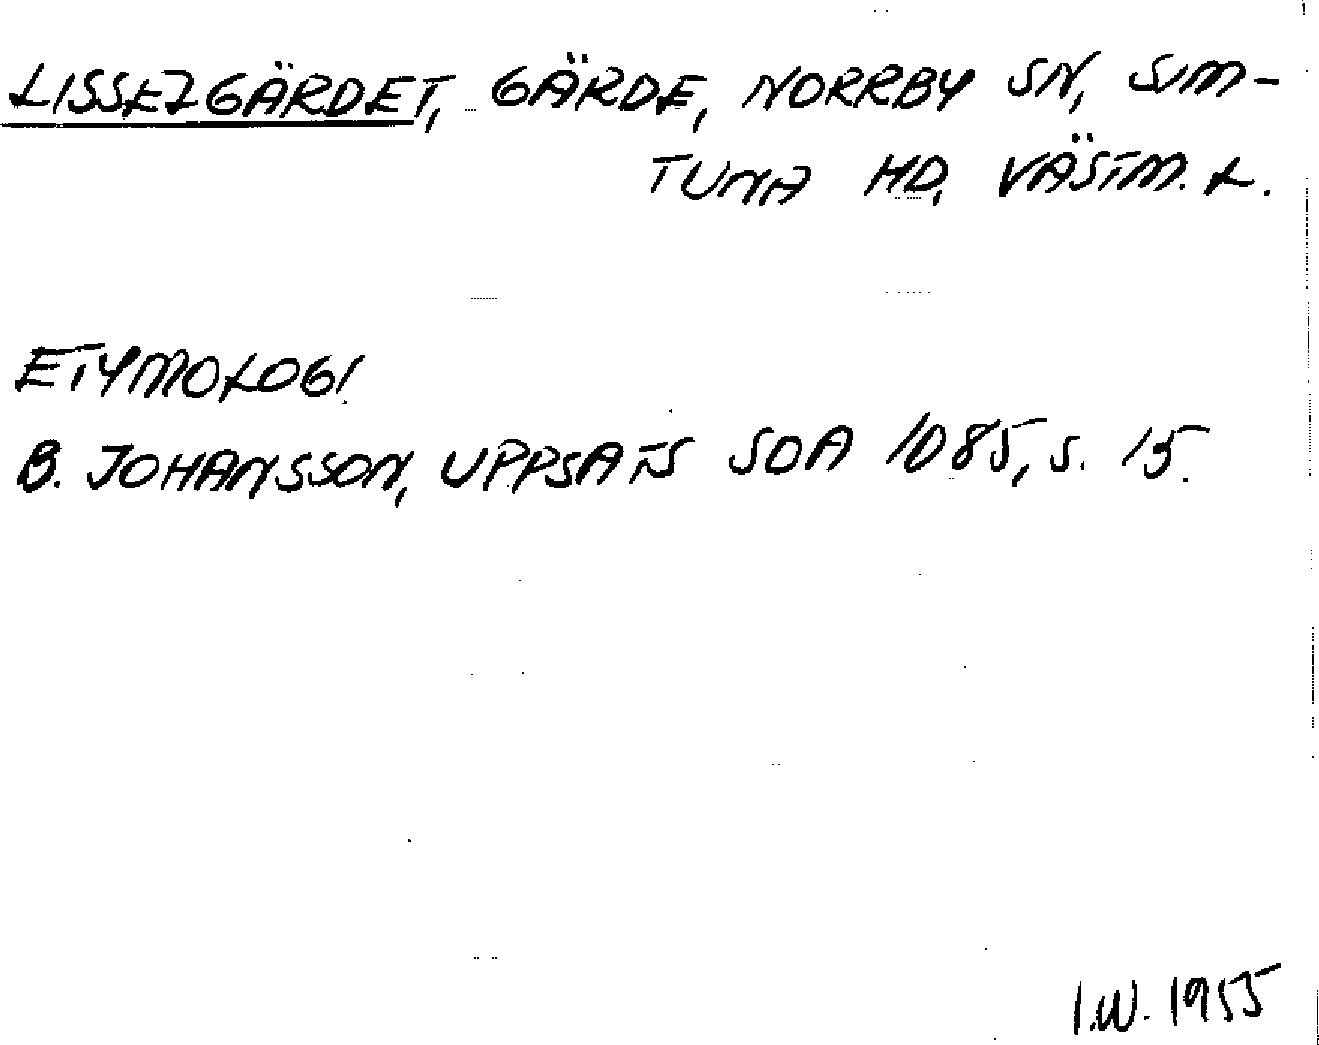 LISSEZGÄRDET, GÄRDE, NORRBY SN, SIM-
TUNA HD, VÄSTM. L.
ETYMOLOGI
B. JOHANSSON, UPPSATS SOA 1085, S. 15.
I.W. 1955